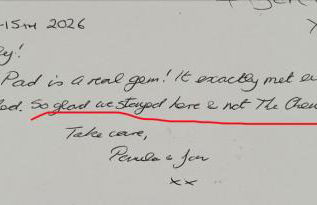 -15TH 2026
y!
Pad is a real gem! It exactly met
ed. So glad we stayed here & not The
Take care,
Pamela & Jon
xx